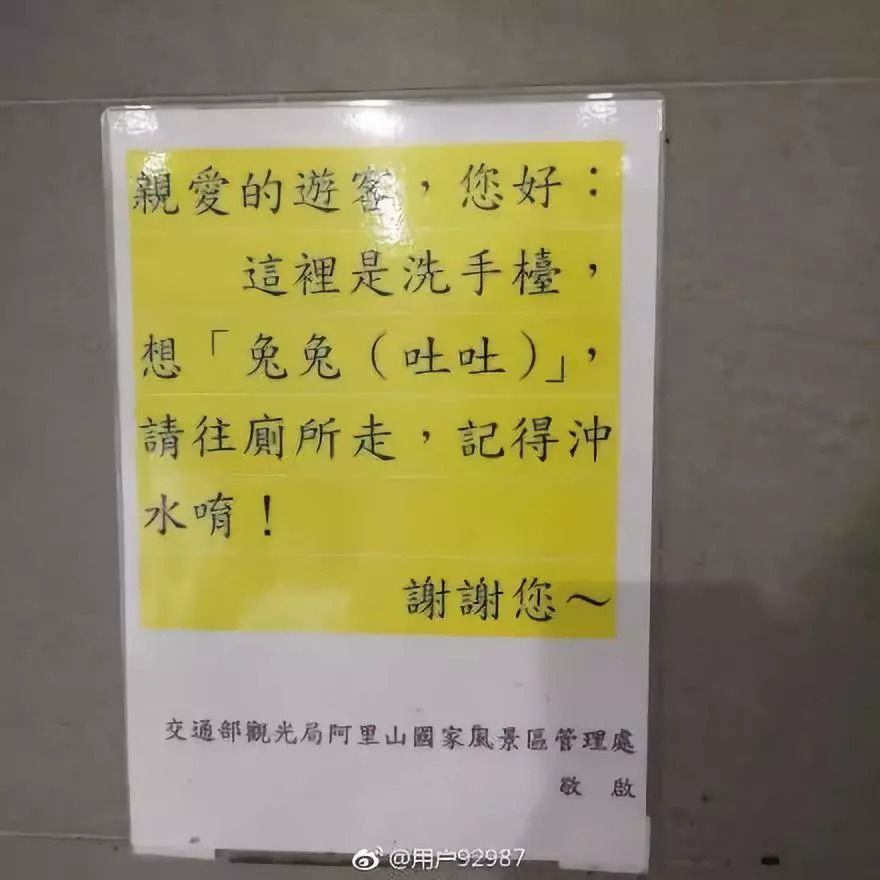 親愛的遊客，您好：
這裡是洗手檯，
想「兔兔（吐吐）」，
請往廁所走，記得沖
水唷！
謝謝您～
交通部觀光局阿里山國家風景區管理處
敬 啟
@用户92987